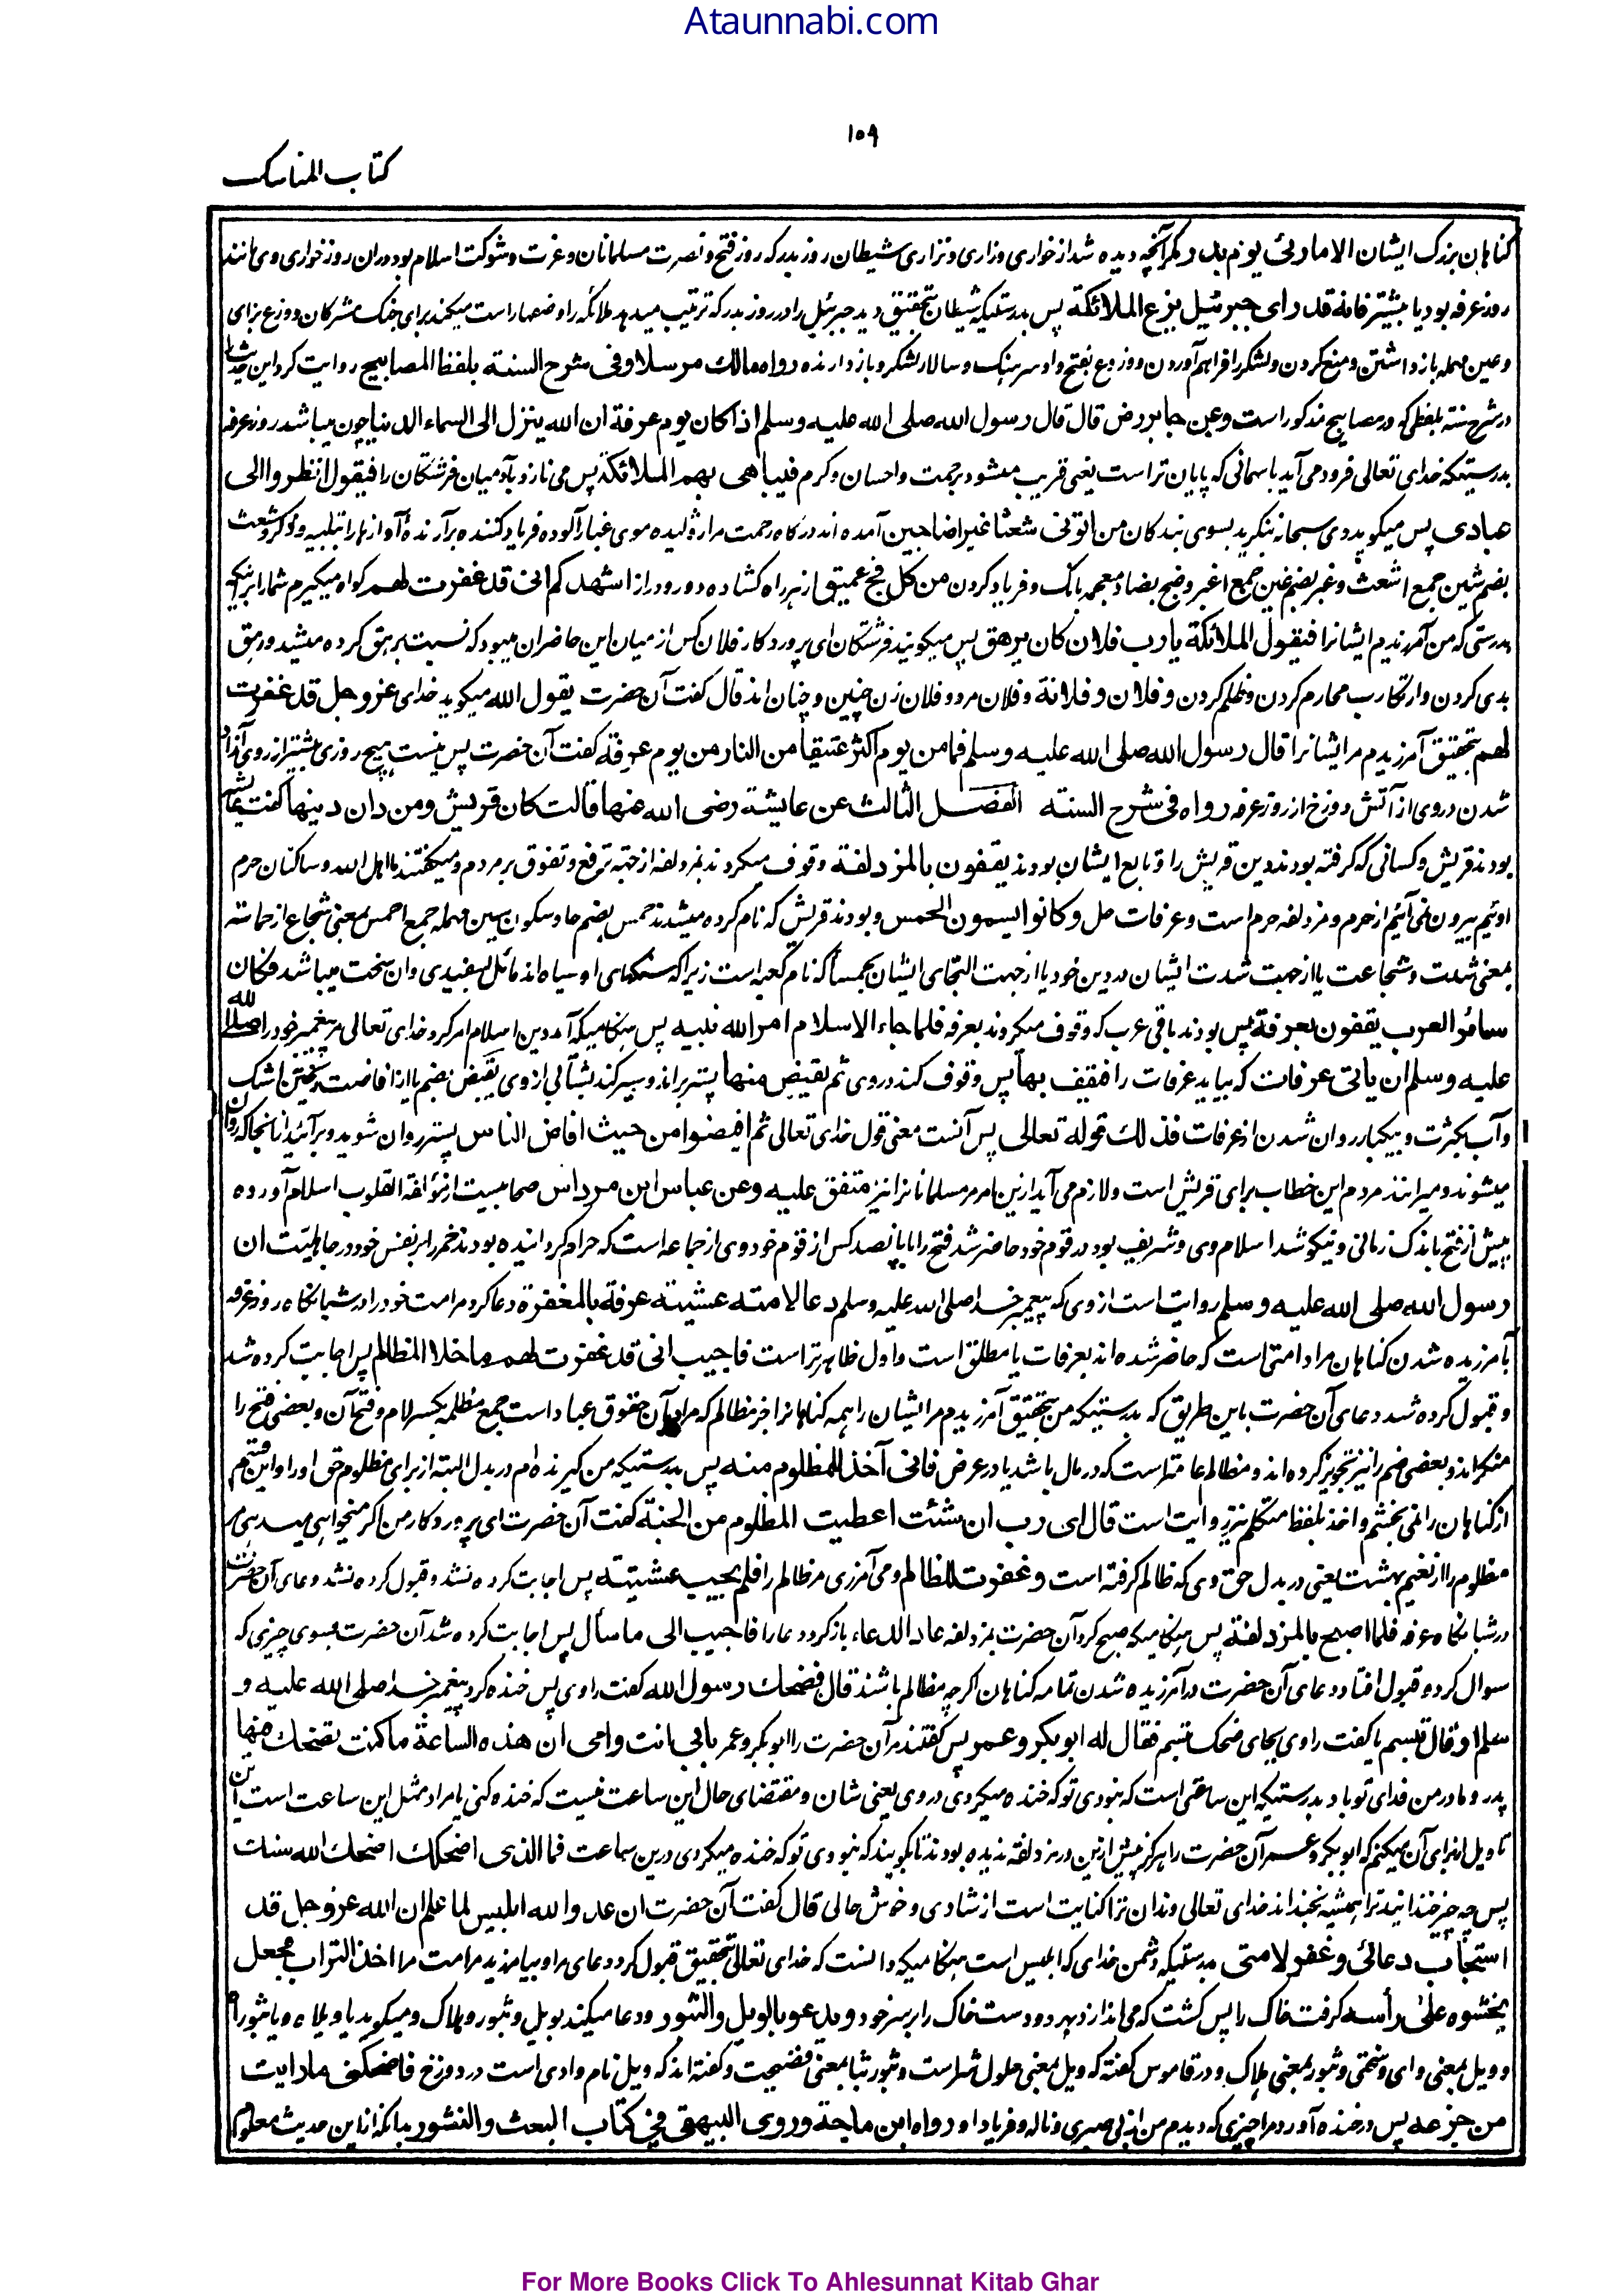 Ataunnabi.com
۱۵۹
کتاب المناسک
گناهان بزرگ ایشان الا ما رئی یوم بدر مگر آنچه دیده شد از خواری وزاری و نزاری شیطان روز بدر که روز فتح و نصرت مسلمانان و عزت و شوکت اسلام بود دران روز خواری وی مانند
روز عرفه بود یا بیشتر فانه قد رای جبرئیل یزع الملائکة پس بدرستیکه شیطان بتحقیق دید جبرئیل را در روز بدر که ترتیب میدهد ملائکه را و صفها راست میکند برای جنگ مشرکان و وزع بزای
وعین مهمله بازداشتن و منع کردن و لشکر را فراهم آوردن و وزوع بفتح واو سرهنگ و سالار لشکر و بازدارنده رواه مالک مرسلا وفی شرح السنة بلفظ المصابیح روایت کرد این حدیث را
در شرح سنة بلفظی که در مصابیح مذکور است وعن جابر رض قال قال رسول الله صلی الله علیه وسلم اذا کان یوم عرفة ان الله ینزل الی السماء الدنیا چون میباشد روز عرفه
بدرستیکه خدای تعالی فرود می آید بآسمانی که پایان تر است یعنی قریب میشود برحمت و احسان و کرم فیباهی بهم الملائکة پس می نازد بآدمیان فرشتگان را فیقول انظروا الی
عبادی پس میگوید وی سبحانه بنگرید بسوی بندگان من اتونی شعثا غبرا ضاجین آمده اند درگاه رحمت مرا ژولیده موی غبار آلوده فریاد کننده برآرنده آوازها را بتلبیه و ذکر و شعث
بضم شین جمع اشعث وغبر بضم غین جمع اغبر وضج بضاد معجمه بانگ و فریاد کردن من کل فج عمیق از هر راه کشاده دور و دراز اشهدکم انی قد غفرت لهم گواه میگیرم شما را بر اینکه
بدرستی که من آمرزیدم ایشانرا فیقول الملائکة یارب فلان کان یرهق پس میگویند فرشتگان ای پروردگار فلان کس از میان این حاضران میبود که نسبت برهق کرده میشد و رهق
بدی کردن و ارتکاب محارم کردن و ظلم کردن و فلان و فلانة و فلان مرد و فلان زن چنین و چنان اند قال گفت آن حضرت یقول الله میگوید خدای عز و جل قد غفرت
لهم بتحقیق آمرزیدم مر ایشانرا قال رسول الله صلی الله علیه وسلم فما من یوم اکثر عتیقا من النار من یوم عرفة گفت آن حضرت پس نیست هیچ روزی بیشتر از روی آزاد
شدن دروی از آتش دوزخ از روز عرفه رواه فی شرح السنة الفصل الثالث عن عایشة رضی الله عنها قالت کان قریش ومن دان دینها گفت عایشه
بودند قریش و کسانی که گرفته بودند دین قریش را و تابع ایشان بودند یقفون بالمزدلفة وقوف میکردند بمزدلفه از جهة ترفع و تفوق بر مردم و میگفتند ما اهل الله و ساکنان حرم
اوئیم بیرون نمی آئیم از حرم و مزدلفه حرم است و عرفات حل و کانوا یسمون الحمس و بودند قریش که نام کرده میشدند حمس بضم حا و سکون سین مهمله جمع احمس بمعنی شجاع از حماسة
بمعنی شدت و شجاعت یا از جهت شدت ایشان در دین خود یا از جهت التجای ایشان بحمسا که نام کعبه است زیرا که سنگهای او سیاه اند مائل بسفیدی و آن سخت میباشد فکان
سائر العرب یقفون بعرفة پس بودند باقی عرب که وقوف میکردند بعرفه فلما جاء الاسلام امر الله نبیه پس هنگامیکه آمد دین اسلام امر کرد خدای تعالی مر پیغمبر خود را صلی الله
علیه وسلم ان یاتی عرفات که بیاید عرفات را فیقف بها پس وقوف کند دروی ثم یفیض منها پستر براند و سیر کند بشتابی از وی یفیض بضم یا از افاضت ریختن اشک
و آب بکثرت و بیکبار روان شدن از عرفات فذلک قوله تعالی پس آنست معنی قول خدای تعالی ثم افیضوا من حیث افاض الناس پستر روان شوید و برآئید از انجا که روان
میشوند و میرانند مردم این خطاب برای قریش است و لازم می آید ازین امر مر مسلمانانرا نیز متفق علیه وعن عباس ابن مرداس صحابیست از مؤلفة القلوب اسلام آورده
پیش از فتح باندک زمانی و نیکو شد اسلام وی و شریف بود در قوم خود حاضر شد فتح را با پانصد کس از قوم خود وی از جماعه است که حرام گردانیده بودند خمر را بر نفس خود در جاهلیت ان
رسول الله صلی الله علیه وسلم روایت است از وی که پیغمبر خدا صلی الله علیه وسلم دعا لامته عشیة عرفة بالمغفرة دعا کرد مر امت خود را در شبانگاه روز عرفه
بآمرزیده شدن گناهان مراد امتی است که حاضر شده اند بعرفات یا مطلق است و اول ظاهرتر است فاجیب انی قد غفرت لهم ما خلا المظالم پس اجابت کرده شد
و قبول کرده شد دعای آن حضرت باین طریق که بدرستیکه من بتحقیق آمرزیدم مر ایشان را همه گناهانرا جز مظالم که مراد آن حقوق عباد است جمع مظلمه بکسر لام و فتح آن و بعضی فتح را
منکر اند و بعضی ضم را نیز تجویز کرده اند و مظالم عامتر است که در مال باشد یا در عرض فانی آخذ للمظلوم منه پس بدرستیکه من گیرنده ام در بدل البته از برای مظلوم حق او را و این قسم
از گناهان را نمی بخشم و اخذ بلفظ متکلم نیز روایت است قال ای رب ان شئت اعطیت المظلوم من الجنة گفت آن حضرت ای پروردگار من اگر میخواهی میدهی
مظلوم را از نعیم بهشت یعنی در بدل حق وی که ظالم گرفته است و غفرت للظالم و می آمرزی مر ظالم را فلم یجب عشیته پس اجابت کرده نشد و قبول کرده نشد دعای آن حضرت
در شبانگاه عرفه فلما اصبح بالمزدلفة پس هنگامیکه صبح کرد آن حضرت بمزدلفه عاد الدعاء باز کرد دعا را فاجیب الی ما سأل پس اجابت کرده شد آن حضرت بسوی چیزی که
سوال کرد و قبول افتاد دعای آن حضرت در آمرزیده شدن تمامه گناهان اگرچه مظالم باشند قال فضحک رسول الله گفت راوی پس خنده کرد پیغمبر خدا صلی الله علیه و
سلم او قال تبسم یا گفت راوی بجای ضحک تبسم فقال له ابوبکر وعمر پس گفتند مر آن حضرت را ابوبکر و عمر بابی انت وامی ان هذه الساعة ما کنت تضحک فیها
پدر و مادر من فدای تو باد بدرستیکه این ساعتی است که نبودی تو که خنده میکردی دروی یعنی شان و مقتضای حال این ساعت نیست که خنده کنی یا مراد مثل این ساعت است این
تاویل از برای آن میکنم که ابوبکر و عمر آن حضرت را هرگز پیش ازین در مزدلفه ندیده بودند تا بگویند که نبودی تو که خنده میکردی درین ساعت فما الذی اضحکک اضحک الله سنک
پس چه چیز خندانید ترا همیشه بخنداند خدای تعالی دندان ترا کنایت است از شادی و خوش حالی قال گفت آن حضرت ان عدو الله ابلیس لما علم ان الله عز وجل قد
استجاب دعائی وغفر لامتی بدرستیکه دشمن خدای که ابلیس است هنگامیکه دانست که خدای تعالی بتحقیق قبول کرد دعای مرا و بیامرزید مر امت مرا اخذ التراب فجعل
یحثوه علی رأسه گرفت خاک را پس گشت که می اندازد بهر دو دست خاک را بر سر خود و یدعو بالویل والثبور و دعا میکند بویل و ثبور و هلاک و میگوید یا ویلاه و یا ثبوراه
و ویل بمعنی وای و سختی و ثبور بمعنی هلاک و در قاموس گفته که ویل بمعنی حلول شر است و ثبور بثا بمعنی فضیحت و گفته اند که ویل نام وادی است در دوزخ فاضحکنی ما رایت
من جزعه پس در خنده آورد مرا چیزی که دیدم من از بی صبری و ناله و فریاد او رواه ابن ماجة وروی البیهقی فی کتاب البعث والنشور بدانکه از این حدیث معلوم
For More Books Click To Ahlesunnat Kitab Ghar